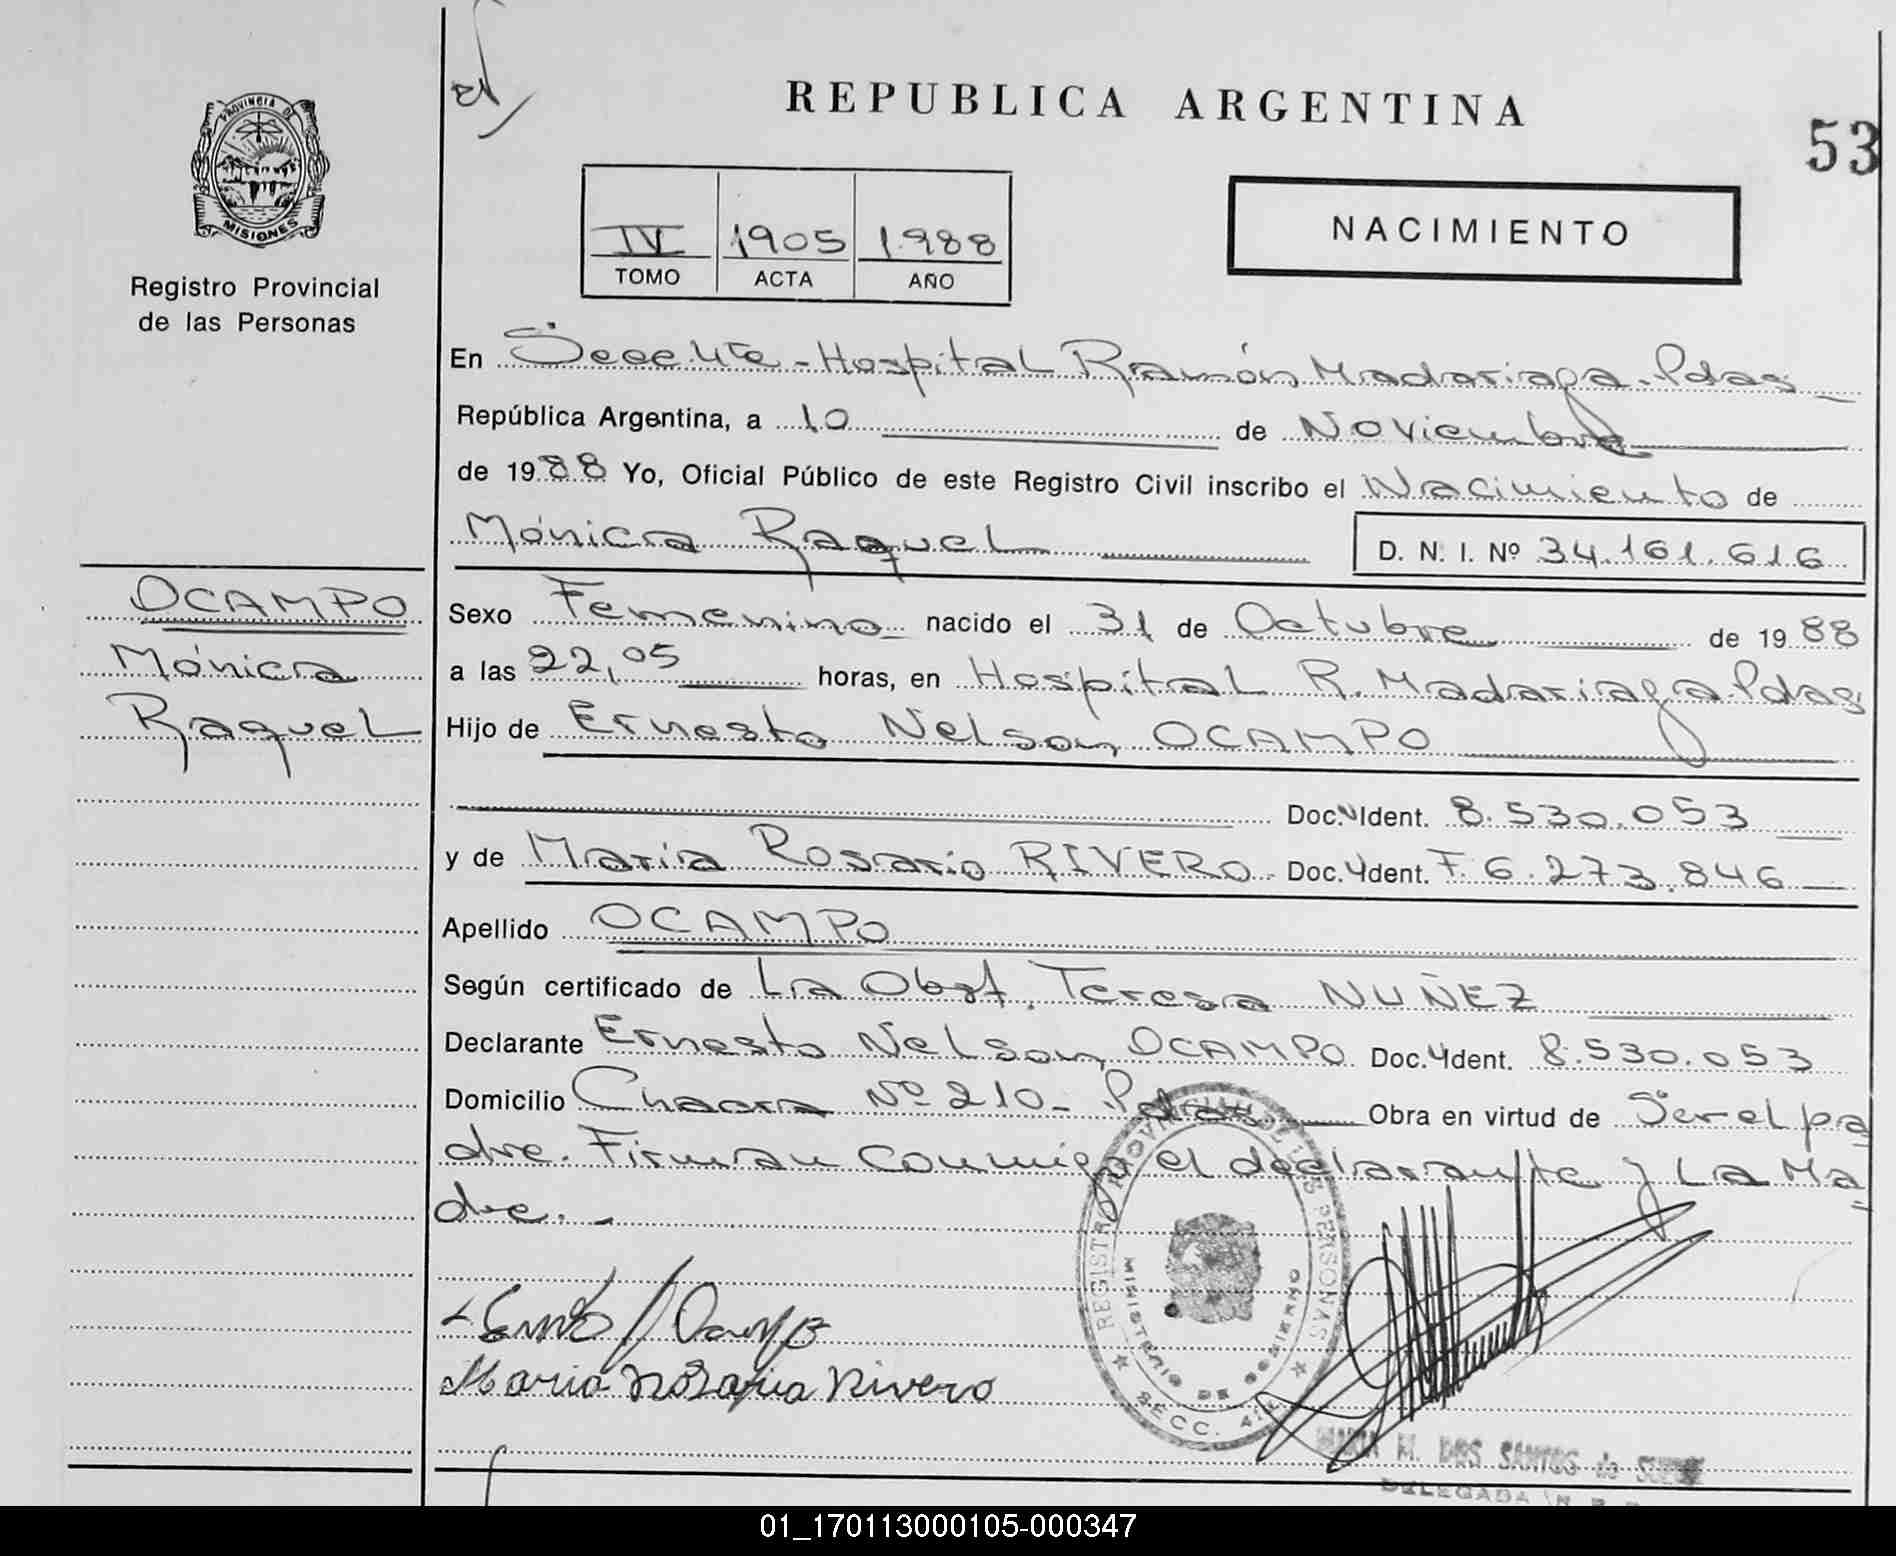 REPUBLICA ARGENTINA
53
PROVINCIA DE
MISIONES
Registro Provincial
de las Personas
IV 1905 1988
TOMO ACTA AÑO
NACIMIENTO
En Secc. 4ta - Hospital Ramón Madariaga - Pdas
República Argentina, a 10 de Noviembre
de 1988 Yo, Oficial Público de este Registro Civil inscribo el Nacimiento de
Mónica Raquel D. N. I. Nº 34.161.616
OCAMPO
Mónica
Raquel
Sexo Femenino nacido el 31 de Octubre de 1988
a las 22,05 horas, en Hospital R. Madariaga. Pdas
Hijo de Ernesto Nelson OCAMPO
Doc. Ident. 8.530.053
y de María Rosario RIVERO Doc. Ident. F. 6.273.846
Apellido OCAMPO
Según certificado de La Obst. Teresa NUÑEZ
Declarante Ernesto Nelson OCAMPO Doc. Ident. 8.530.053
Domicilio Chacra Nº 210 - Pdas Obra en virtud de Ser el pa
dre. Firman conmigo el declarante y La Ma
dre. -
Maria Rosario Rivero
REGISTRO PROVINCIAL DE LAS PERSONAS
MINISTERIO DE GOBIERNO
SECC. 4ta
MARIA M. DOS SANTOS de
DELEGADA
01_170113000105-000347